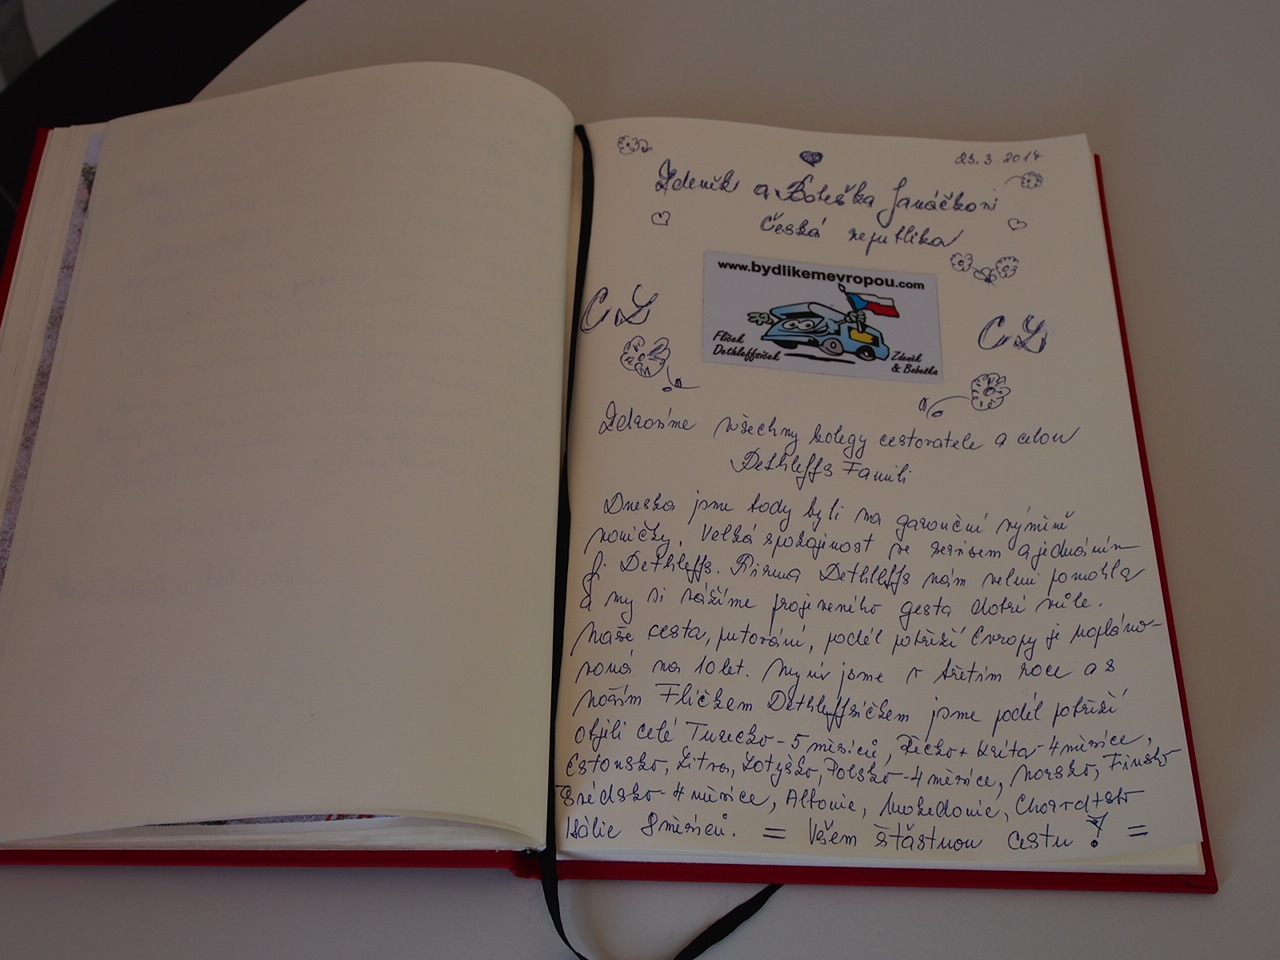 23.3.2014
Zdeněk a Bobeška Janáčkovi
Česká republika
www.bydlikemevropou.com
Flíček
Dethleffsíček
Zdeněk
& Bobeška
CZ
CZ
Zdravíme všechny kolegy cestovatele a celou
Dethleffs Famili
Dneska jsme tady byli na garanční výměně
roničky. Velká spokojenost se servisem a jednáním
f. Dethleffs. Firma Dethleffs nám velmi pomohla
a my si vážíme projeveného gesta dobré vůle.
Naše cesta, putování, podél pobřeží Evropy je napláno-
vaná na 10 let. Nyní jsme v třetím roce a s
naším Flíčkem Dethleffsíčkem jsme podél pobřeží
objeli celé Turecko - 5 měsíců, Řecko + Kréta - 4 měsíce,
Estonsko, Litva, Lotyšsko, Polsko - 4 měsíce, Norsko, Finsko
Švédsko - 4 měsíce, Albanie, Makedonie, Chorvatsko
Itálie 8 měsíců. = Všem šťastnou cestu! =